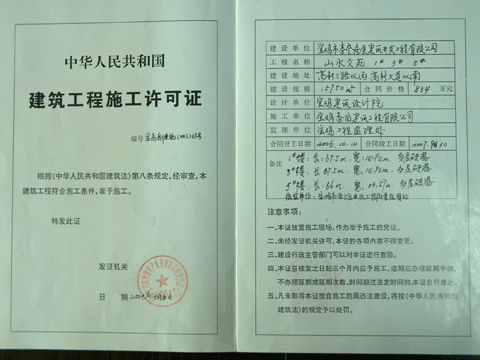 中华人民共和国
建筑工程施工许可证
编号
根据《中华人民共和国建筑法》第八条规定，经审查，本
建筑工程符合施工条件，准予施工。
特发此证
发证机关
日 期
建设单位
工程名称 山水文苑 1# 3# 5#
建设地址 高新三路以西 高新大道以南
建设规模 15950m² 合同价格 834 万元
设计单位 宝鸡建筑设计院
施工单位
监理单位 宝鸡工程监理处
合同开工日期 2006.10.10 合同竣工日期
备注 1#楼：长：67.5m
3#楼：长：67.5m
5#楼：长：66m
注意事项：
一、本证放置施工现场，作为准予施工的凭证。
二、未经发证机关许可，本证的各项内容不得变更。
三、建设行政主管部门可以对本证进行查验。
四、本证自核发之日起三个月内应予施工，逾期应办理延期手续，
不办理延期或延期次数、时间超过法定时间的，本证自行废止。
五、凡未取得本证擅自施工的属违法建设，将按《中华人民共和国
建筑法》的规定予以处罚。